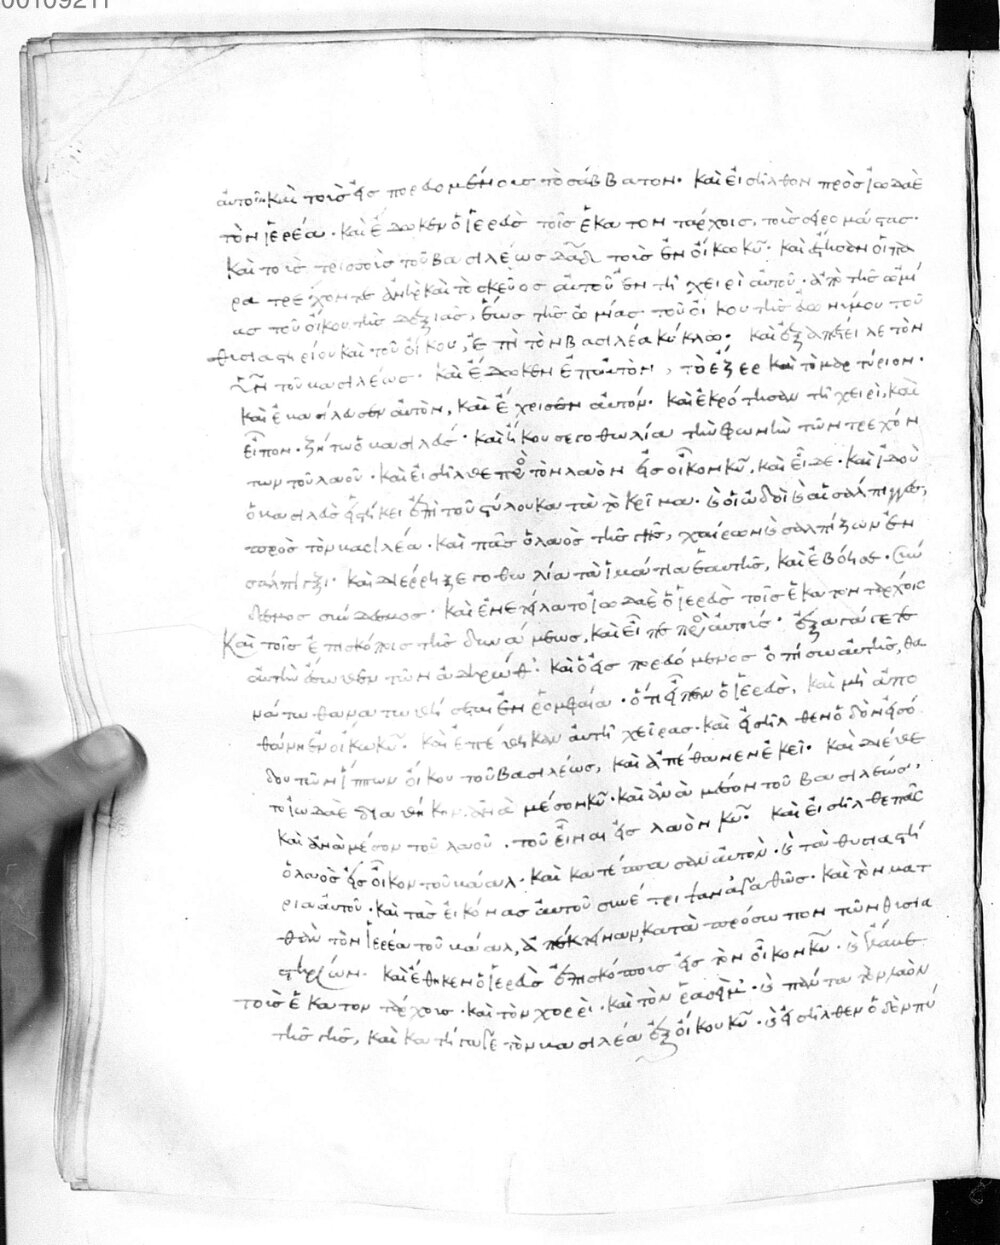 00109211
αὐτοῦ καὶ τοῖς εἰσπορευομένοις τὸ σάββατον· καὶ εἰσῆλθον πρὸς ἰωδαὲ
τὸν ἱερέα· καὶ ἔδωκεν ὁ ἱερεὺς τοῖς ἑκατοντάρχοις, τοὺς σειρομάστας·
καὶ τοὺς τρισσοὺς τοῦ βασιλέως δᾱδ τοὺς ἐν οἴκω κ̄ῡ· καὶ ἔστησαν οἱ πα
ρατρέχοντες ἀνὴρ καὶ τὸ σκεῦος αὐτοῦ ἐν τῆ χειρὶ αὐτοῦ· ἀπὸ τῆς ὠμί
ας τοῦ οἴκου τῆς δεξιᾶς, ἕως τῆς ὠμίας τοῦ οἴκου τῆς εὐωνύμου τοῦ
θυσιαστηρίου καὶ τοῦ οἴκου, ἐπὶ τὸν βασιλέα κύκλω· καὶ ἐξαπέστειλε τὸν
ῡν̄ τοῦ βασιλέως· καὶ ἔδωκεν ἐπ' αὐτὸν, τὸ ἔζερ καὶ τὸ μαρτύριον·
καὶ ἐβασίλευσεν αὐτὸν, καὶ ἔχρισεν αὐτόν· καὶ ἐκρότησαν τῆ χειρὶ, καὶ
εἶπον· ζήτω ὁ βασιλεύς· καὶ ἤκουσε γοθολία τὴν φωνὴν τῶν τρεχόν
των τοῦ λαοῦ· καὶ εἰσῆλθε πρὸς τὸν λαὸν εἰς οἶκον κ̄ῡ, καὶ εἶδε· καὶ ἰδοὺ
ὁ βασιλεὺς εἱστήκει ἐπὶ τοῦ στύλου κατὰ τὸ κρῖμα· καὶ οἱ ὠδοὶ καὶ αἱ σάλπιγγες,
πρὸς τὸν βασιλέα· καὶ πᾶς ὁ λαὸς τῆς γῆς, χαίρων καὶ σαλπίζων ἐν
σάλπιγξι· καὶ διέρρηξε γοθολία τὰ ἱμάτια ἑαυτῆς, καὶ ἐβόησε· σύν
δεσμος σύνδεσμος· καὶ ἐνετείλατο ἰωδαὲ ὁ ἱερεὺς τοῖς ἑκατοντάρχοις
καὶ τοῖς ἐπισκόποις τῆς δυνάμεως, καὶ εἶπε πρὸς αὐτούς· ἐξαγάγετε
αὐτὴν ἔσωθεν τῶν σαδηρώθ· καὶ ὁ εἰσπορευόμενος ὀπίσω αὐτῆς, θα
νάτω θανατωθήσεται ἐν ῥομφαία· ὅτι εἶπεν ὁ ἱερεὺς, καὶ μὴ ἀπο
θάνη ἐν οἴκω κ̄ῡ· καὶ ἐπέθηκαν αὐτῆ χεῖρας· καὶ εἰσῆλθεν ὁδὸν εἰσό
δου τῶν ἵππων οἴκου τοῦ βασιλέως, καὶ ἀπέθανεν ἐκεῖ· καὶ διέθε
το ἰωδαὲ διαθήκην, ἀνὰ μέσον κ̄ῡ· καὶ ἀνὰ μέσον τοῦ βασιλέως,
καὶ ἀνὰ μέσον τοῦ λαοῦ· τοῦ εἶναι εἰς λαὸν κ̄ῡ· καὶ εἰσῆλθε πᾶς
ὁ λαὸς εἰς οἶκον τοῦ βάαλ· καὶ κατέσπασαν αὐτὸν· καὶ τὰ θυσιαστή
ρια αὐτοῦ· καὶ τὰς εἰκόνας αὐτοῦ συνέτριψαν ἀγαθῶς· καὶ τὸν ματ
θὰν τὸν ἱερέα τοῦ βάαλ, ἀπέκτειναν, κατὰ πρόσωπον τῶν θυσια
στηρίων· καὶ ἔθηκεν ὁ ἱερεὺς ἐπισκόπους εἰς τὸν οἶκον κ̄ῡ· καὶ ἔλαβε
τοὺς ἑκατοντάρχους· καὶ τὸν χορεὶ· καὶ τὸν ῥασεὶμ· καὶ πάντα τὸν λαὸν
τῆς γῆς, καὶ κατήγαγε τὸν βασιλέα ἐξ οἴκου κ̄ῡ· καὶ εἰσῆλθεν ὁδὸν πύ